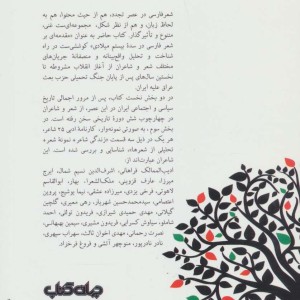 شعرفارسی در عصر تجدد، هم از حیث محتوا، هم به
لحاظ زبان، و هم از نظر شکل، مجموعه‌ای‌ست غنی،
متنوع و تأثیرگذار. کتاب حاضر به عنوان «مقدمه‌ای بر
شعر فارسی در سدهٔ بیستم میلادی» کوششی‌ست در راه
شناخت و تحلیل واقع‌بینانه و منصفانهٔ جریان‌های
مختلف شعر و شاعران از آغاز انقلاب مشروطه تا
نخستین سال‌های پس از پایان جنگ تحمیلی حزب بعث
عراق علیه ایران.
در دو بخش نخست کتاب، پس از مرور اجمالی تاریخ
سیاسی و اجتماعی ایران در این عصر، از شعر و شاعران
در چهارچوب شش دورهٔ تاریخی سخن رفته است. در
بخش سوم، به صورتی نمونه‌وار، کارنامهٔ ادبی ۲۵ شاعر،
هر یک در ذیل سه قسمت «زندگی شاعر» نمونهٔ شعر» و
تحلیلی از شعرها»، شناسایی و بررسی شده است. این
شاعران عبارت‌اند از:
ادیب‌الممالک فراهانی، اشرف‌الدین نسیم شمال، ایرج
میرزا، عارف قزوینی، ملک‌الشعراء بهار، ابوالقاسم
لاهوتی، فرخی یزدی، میرزاده عشقی، نیما یوشیج، پروین
اعتصامی، سیدمحمدحسین شهریار، رهی معیری، گلچین
گیلانی، مهدی حمیدی شیرازی، فریدون توللی، احمد
شاملو، سیاوش کسرایی، فریدون مشیری، سیمین بهبهانی،
نصرت رحمانی، مهدی اخوان ثالث، سهراب سپهری،
نادر نادرپور، منوچهر آتشی و فروغ فرخزاد.
جهان کتاب